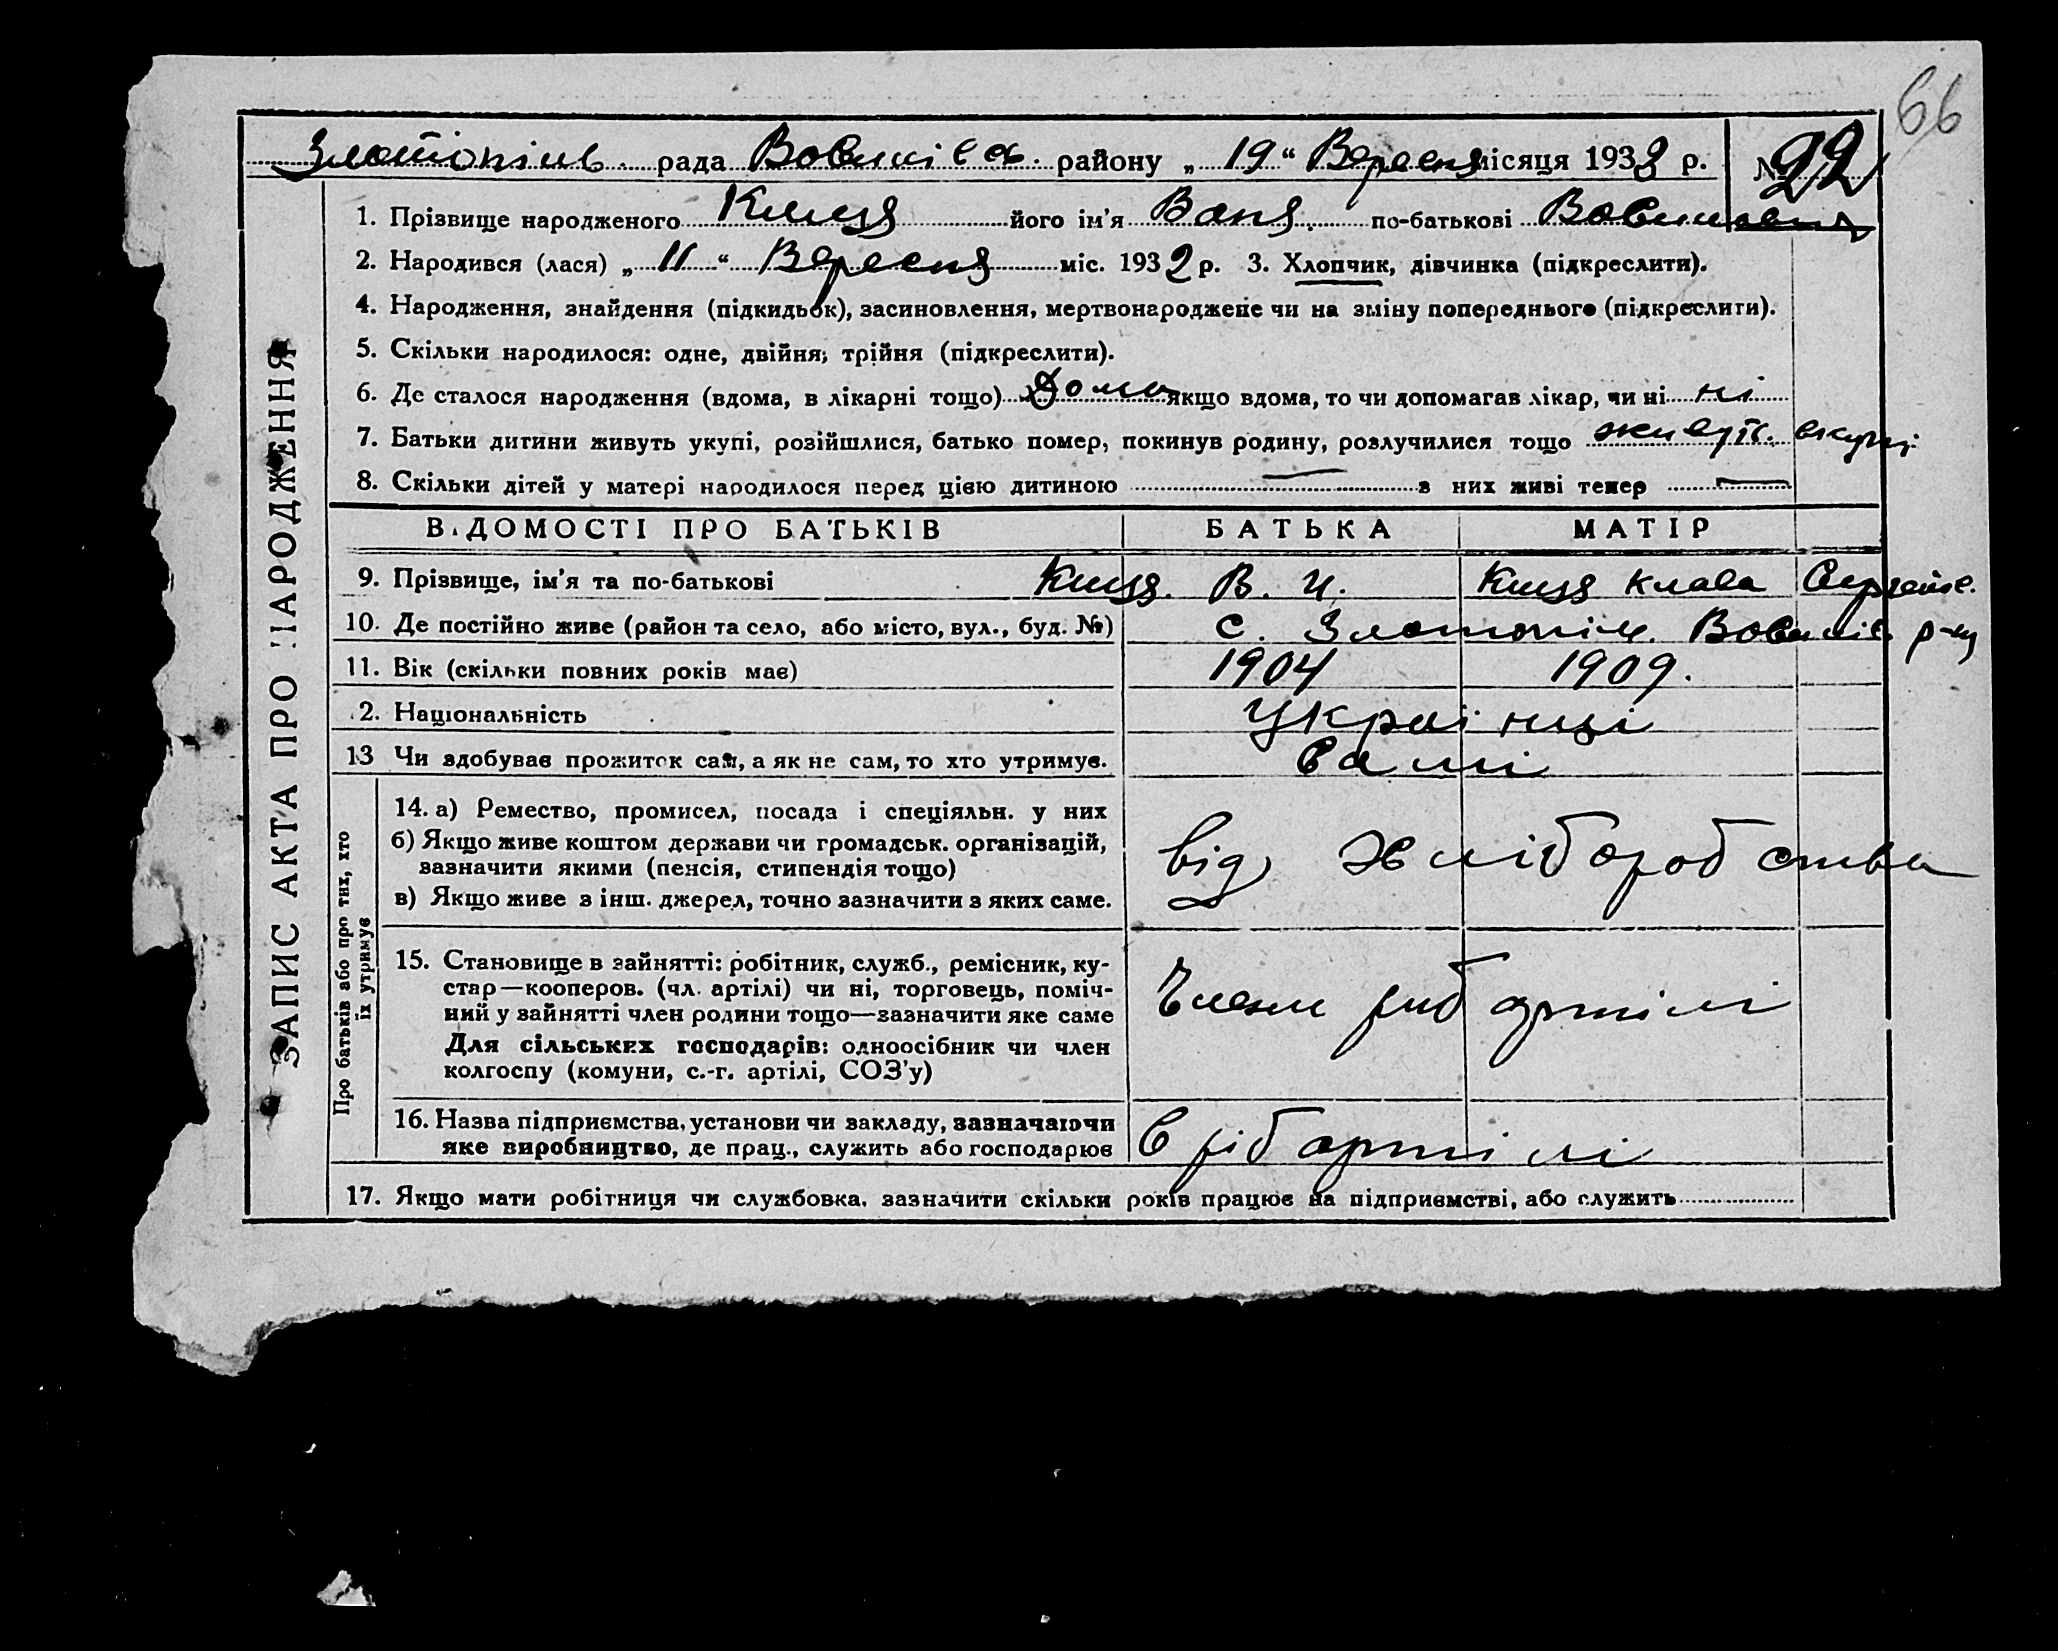 66
Златопіль рада району „ 19 “ Вересня місяця 1932 р. № 22
1. Прізвище народженого його ім'я Ваня по-батькові
2. Народився (лася) „ 11 “ Вересня міс. 1932 р. 3. Хлопчик, дівчинка (підкреслити).
4. Народження, знайдення (підкидьок), засиновлення, мертвонароджене чи на зміну попереднього (підкреслити).
5. Скільки народилося: одне, двійня, трійня (підкреслити).
6. Де сталося народження (вдома, в лікарні тощо) Дома якщо вдома, то чи допомагав лікар, чи ні ні
7. Батьки дитини живуть укупі, розійшлися, батько помер, покинув родину, розлучилися тощо живуть вкупі
8. Скільки дітей у матері народилося перед цією дитиною — з них живі тепер —
ВІДОМОСТІ ПРО БАТЬКІВ БАТЬКА МАТІР
9. Прізвище, ім'я та по-батькові В. И. Клава
10. Де постійно живе (район та село, або місто, вул., буд. №) с. Златопіль р-ну
11. Вік (скільки повних років має) 1904 1909.
12. Національність Українці
13 Чи здобував прожиток сам, а як не сам, то хто утримує. Самі
14. а) Ремество, промисел, посада і спеціяльн. у них
б) Якщо живе коштом держави чи громадськ. організацій,
зазначити якими (пенсія, стипендія тощо)
в) Якщо живе з інш. джерел, точно зазначити з яких саме.
від Хліборобства
15. Становище в зайнятті: робітник, служб., ремісник, ку-
стар—кооперов. (чл. артілі) чи ні, торговець, поміч-
ний у зайнятті член родини тощо—зазначити яке саме
Для сільських господарів: одноосібник чи член
колгоспу (комуни, с.-г. артілі, СОЗ'у)
Члени риб артілі
16. Назва підприємства, установи чи закладу, зазначаючи
яке виробництво, де прац., служить або господарює
В ріб артілі
17. Якщо мати робітниця чи службовка, зазначити скільки років працює на підприємстві, або служить
ЗАПИС АКТА ПРО НАРОДЖЕННЯ
Про батьків або про тих, хто
їх утримує